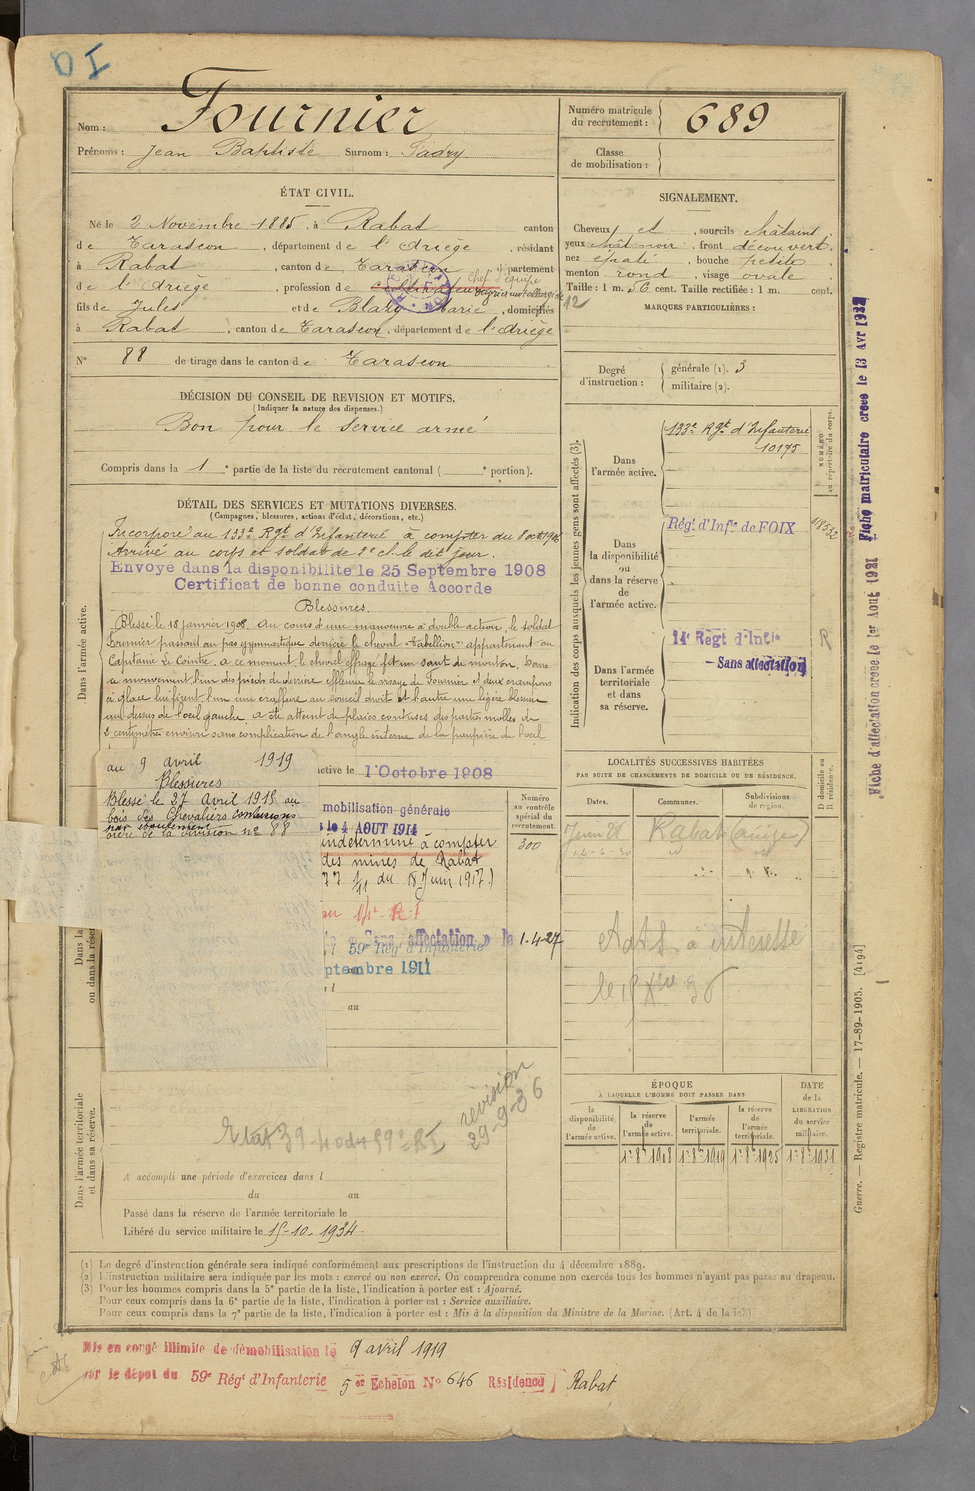 Nom : Fournier
Prénoms : Jean Baptiste Surnom : Fadry
Numéro matricule du recrutement : 689
Classe de mobilisation :
ÉTAT CIVIL.
Né le 2 Novembre 1885, à Rabat canton
de Tarascon, département de l'Ariège, résidant
à Rabat, canton de Tarascon, département
de l'Ariège, profession de cultivateur Chef d'équipe
fils de Jules et de Marie, domiciliés
à Rabat, canton de Tarascon, département de l'Ariège
N° 88 de tirage dans le canton de Tarascon
DÉCISION DU CONSEIL DE REVISION ET MOTIFS.
(Indiquer la nature des dispenses.)
Bon pour le service armé
Compris dans la 1e partie de la liste du recrutement cantonal ( e portion).
SIGNALEMENT.
Cheveux et, sourcils châtains
yeux, front découvert,
nez épaté, bouche petite
menton rond, visage ovale
Taille : 1 m. 56 cent. Taille rectifiée : 1 m. cent.
MARQUES PARTICULIÈRES :
Degré d'instruction :
générale (1). 3
militaire (2).
DÉTAIL DES SERVICES ET MUTATIONS DIVERSES.
(Campagnes, blessures, actions d'éclat, décorations, etc.)
Dans l'armée active.
Incorporé au 133e Rgt d'Infanterie à compter du 8 oct 1906
Arrivé au corps et soldat de 2e cl. le dit jour.
Envoyé dans la disponibilité le 25 Septembre 1908
Certificat de bonne conduite Accordé
Blessures.
Blessé le 18 janvier 1908. Au cours d'une manoeuvre à double action, le soldat
Fournier passant au pas gymnastique derrière le cheval "Tabellion" appartenant au
Capitaine Le Cointre, à ce moment le cheval effrayé fit un saut de mouton. Dans
ce mouvement l'un des pieds de derrière effleura le visage de Fournier et deux crampons
à glace lui firent l'une une éraflure au sourcil droit et l'autre une légère blessure
au dessus de l'oeil gauche. a été atteint de plaies contuses des parties molles de
2 centimètres environ sans complication de l'angle interne de la paupière de l'oeil
au 9 avril 1919
Blessures
Blessé le 27 Avril 1915 au
bois des Chevaliers contusions
par éboulement
ordre de la division n° 88
active le 1 Octobre 1908
mobilisation générale
le 4 AOUT 1914
indéterminé à compter
des mines de Rabat
du 18 Juin 1917.)
« Sans affectation » le 1-4-27
59e Rég. d'Infanterie
ptembre 1911
au
Numéro au contrôle spécial du recrutement.
300
Indication des corps auxquels les jeunes gens sont affectés (3).
Dans l'armée active.
133e Rgt d'Infanterie
10175
NUMÉRO au répertoire du corps.
Dans la disponibilité ou dans la réserve de l'armée active.
Régt d'Infie de FOIX
Dans l'armée territoriale et dans sa réserve.
14e Régt d'Infie
- Sans affectation
R
LOCALITÉS SUCCESSIVES HABITÉES
PAR SUITE DE CHANGEMENTS DE DOMICILE OU DE RÉSIDENCE.
Dates. Communes. Subdivisions de région. D domicile ou R résidence.
Rabat (Ariège)
à intéressé
ÉPOQUE
À LAQUELLE L'HOMME DOIT PASSER DANS
la disponibilité de l'armée active.
la réserve de l'armée active.
l'armée territoriale.
la réserve de l'armée territoriale.
DATE de la LIBÉRATION du service militaire.
1er 8bre 1908 1er 8bre 1919 1er 8bre 1925 1er 8bre 1931
Dans l'armée territoriale et dans sa réserve.
revision
29-9-36
A accompli une période d'exercices dans l
du au
Passé dans la réserve de l'armée territoriale le
Libéré du service militaire le 15-10-1934
(1) Le degré d'instruction générale sera indiqué conformément aux prescriptions de l'instruction du 4 décembre 1889.
(2) L'instruction militaire sera indiquée par les mots : exercé ou non exercé. On comprendra comme non exercés tous les hommes n'ayant pas passé au drapeau.
(3) Pour les hommes compris dans la 5e partie de la liste, l'indication à porter est : Ajourné.
Pour ceux compris dans la 6e partie de la liste, l'indication à porter est : Service auxiliaire.
Pour ceux compris dans la 7e partie de la liste, l'indication à porter est : Mis à la disposition du Ministre de la Marine. (Art. 4 de la loi.)
Mis en congé illimité de démobilisation le 9 avril 1919
par le dépôt du 59e Régt d'Infanterie 5 er Echelon N° 646 Résidence ) Rabat
Fiche d'affectation créée le 1er Aout 1921
Fiche matriculaire créée le 13 Avr 1932
Guerre. — Registre matricule. — 17-89-1905. [4194]